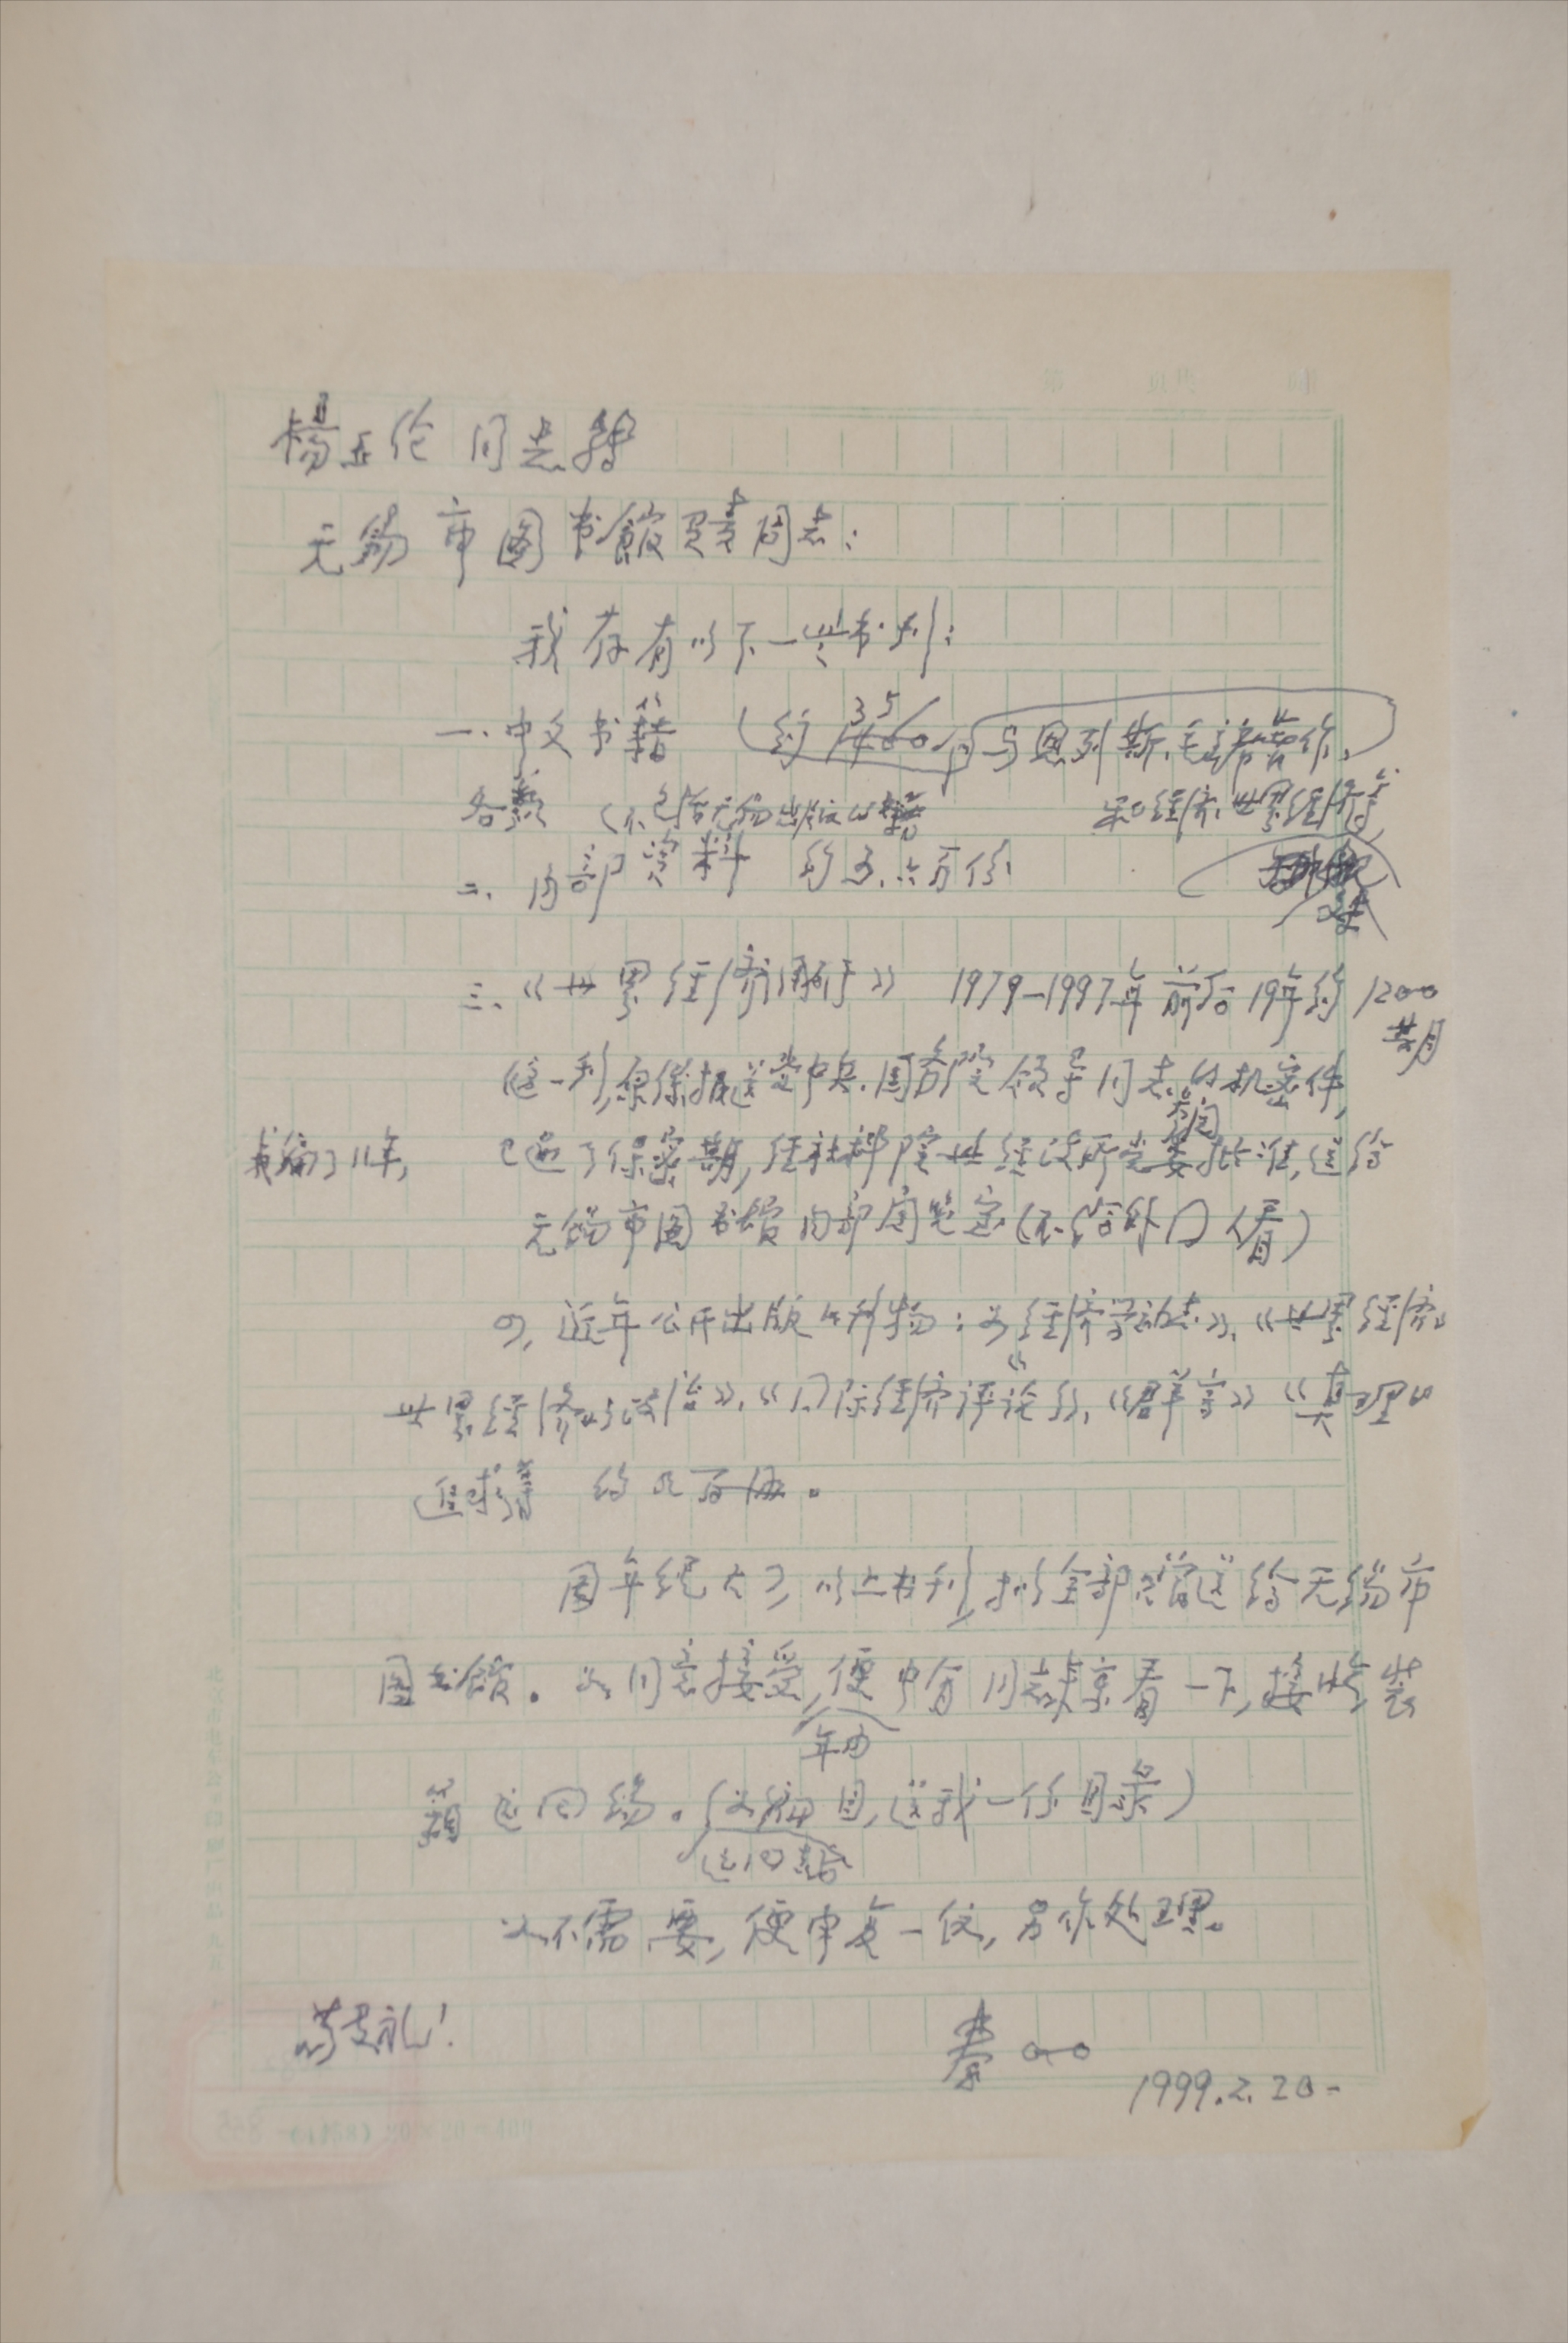 杨亚伦同志转
无锡市图书馆负责同志：
我存有以下一些书刊：
一、中文书籍（约 马恩列斯、毛 著作、
各类（不包括无锡出版的书籍 和经济、世界经济等
二、内部资料 约五、六百份
三、《世界经济调研》 1979—1997年前后19年约1200
期
这一刊，原系报送党中央、国务院领导同志的机密件，
我编了11年， 已过了保密期，经社科院世经政所党委批准，送给
无锡市图书馆内部阅览室（不给外国人看）
四、近年公开出版的刊物：如《经济学动态》、《世界经济》
《世界经济与政治》、《国际经济评论》、《群言》《真理的
追求》等 约 百册。
因年纪大了，以上书刊，拟全部赠送给无锡市
图书馆。如同意接受，便中有同志来京看一下，接收，装
年内
箱运回锡。（如编目，送我一份目录）
运回 后
如不需要，便中复一信，另作处理。
敬礼！
秦
1999.2.20